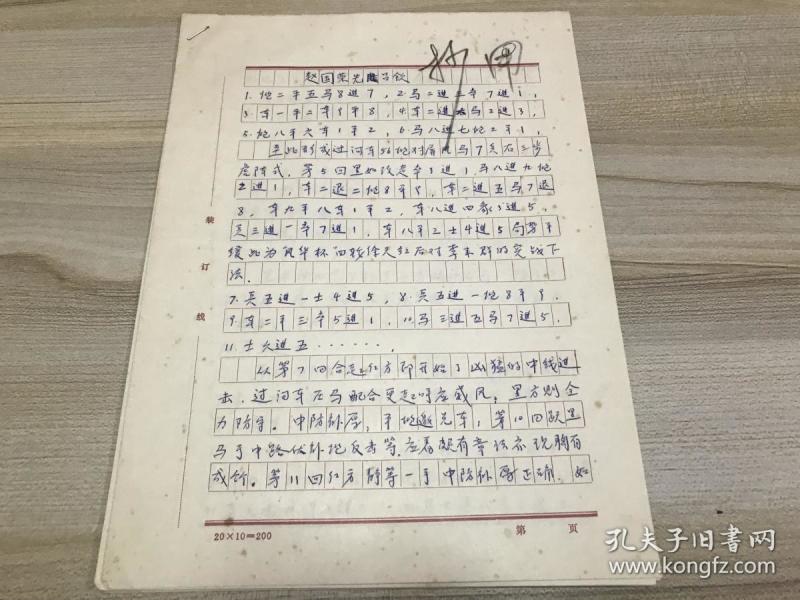 抄用
赵国荣先胜吕钦
1. 炮二平五马8进7，2. 马二进三卒7进1，
3. 车一平二车9平8，4. 车二进六马2进3，
5. 炮八平六车1平2，6. 马八进七炮2平1，
至此形成过河车五六炮对屏风马7兵右三步
虎阵式，第5回黑如改走卒3进1，马八进九炮
2进1，车二退二炮8平9，车二进五马7退
8，车九平八车1平2，车八进四象3进5，
兵三进一卒7进1，车八平三士4进5局势平
缓此为风华杯四 徐天红后对李来群的实战下
法。
7. 兵五进一士4进5，8. 兵五进一炮8平9，
9. 车二平三卒5进1，10. 马三进五马7进5，
11. 士六进五……
从第7回合起红方即开始了凶猛的中线进
击，过河车左马配合更起呼应威风，黑方则全
力防守。中防补厚，平炮邀兑车，第10回跃黑
马于中路伏卧炮反击等，应着都有章法亦现胸有
成竹。第11回红方静等一手中防补厚正确，如
装
订
线
20×10=200
第 页
孔夫子旧书网
www.kongfz.com